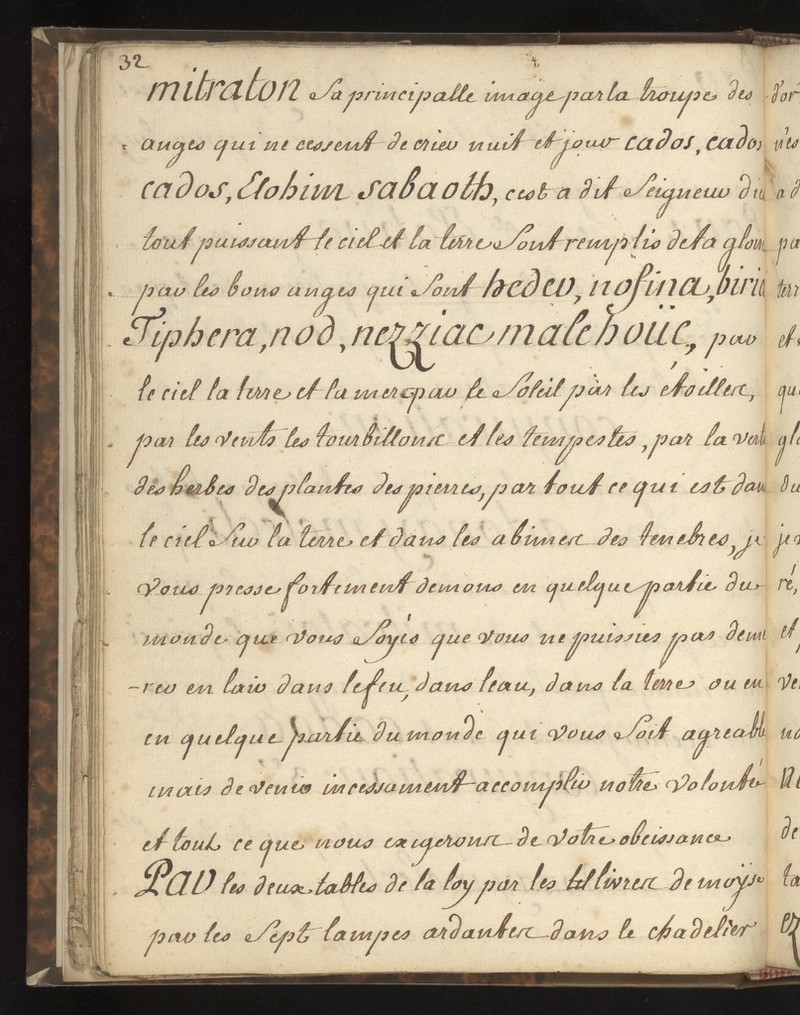 32
mitraton Sa principalle image par la troupe des
anges qui ne cessent de crier nuit et jour cados, cados
cados, Elohim sabaoth, cest a dit Seigneur
tout puissant le ciel et la terre Sont remplis de ta gloire
par les bons anges qui Sont hedeu, nosina,
Tiphera, nod, nezziac malehoüe, par
le ciel la terre et la mer par le Soleil par les étoilles,
par les vents les tourbillons et les tempestes, par la
des herbes des plantes des pierres, par tout ce qui est dans
le ciel Sur la terre et dans les abimes des tenebres, je
vous presse fortement demons en quelque partie du
monde que vous Soyés que vous ne puissies pas demu
-rer en lair dans le feu, dans leau, dans la terre ou en
en quelque partie du monde qui vous Soit agreable
mais de venir incessament accomplir notre volonté
et tout ce que nous exigerons de votre obeissance
Par les deux tables de la loy par les livres de moÿse
par les Sept lampes ardantes dans le chadelier